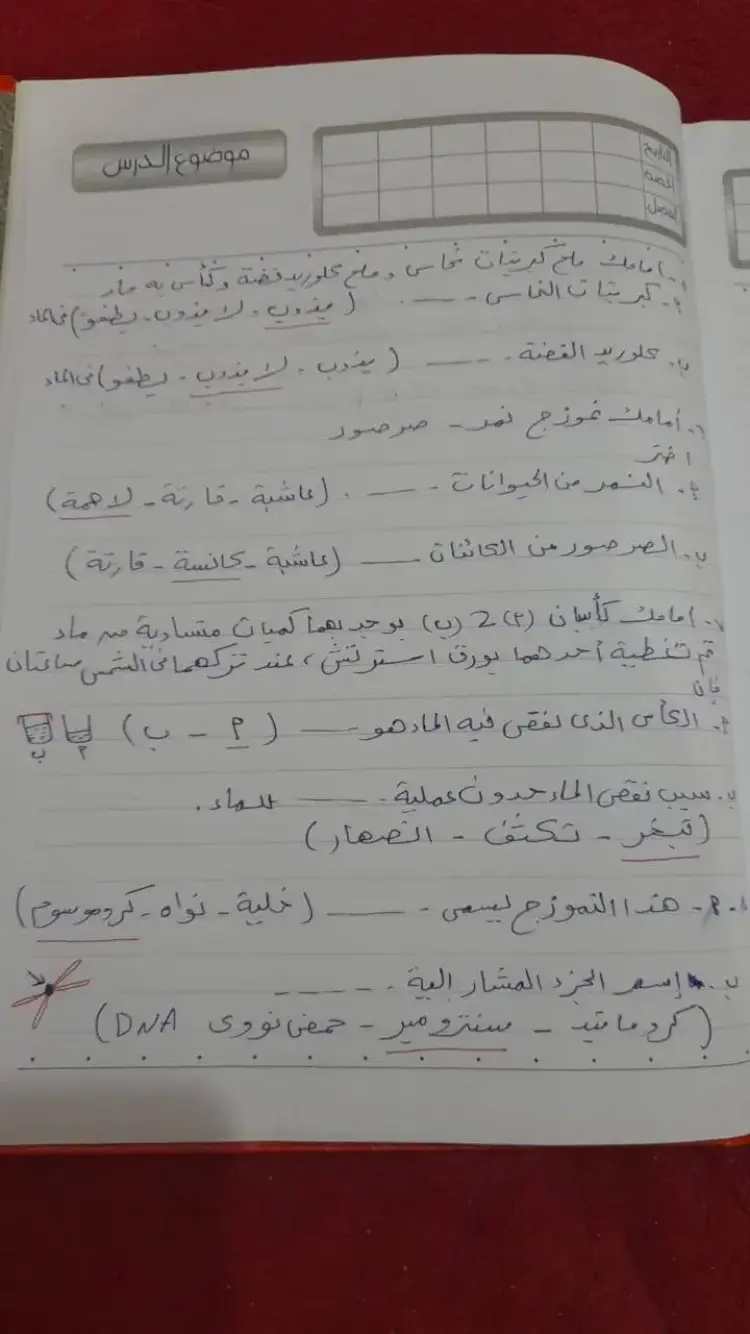 موضوع الدرس
التاريخ
الحصة
الفصل
أمامك ملح كبريتات نحاس وملح كلوريد فضة وكأس به ماء
أ. كبريتات النحاس ــــ. (يذوب - لا يذوب - يطفو) فى الماء
ب. كلوريد الفضة. ــــ (يذوب - لا يذوب - يطفو) فى الماء
٦. أمامك نموزج نمر - صرصور
اختر
أ. النمر من الحيوانات ــــ. (عاشبة - قارتة - لاحمة)
ب. الصرصور من الكائنات ــــ (عاشبة - كانسة - قارتة)
٧. أمامك كأسان (أ) 2 (ب) يوجد بهما كميات متساوية من ماء
تم تغطية أحدهما بورق استرتش، عند تركهما فى الشمس ساعتان
فإن
أ. الكأس الذى نقص فيه الماء هو ــــ (أ - ب)
أ ب
ب. سبب نقص الماء حدوث عملية. ــــ للماء.
(تبخر - تكثف - انصهار)
٨. أ- هذا النموزج يسمى. ــــ (خلية - نواه - كروموسوم)
ب. إسم الجزء المشار إلية. ــــ
(كروماتيد - سنترومير - حمض نووى DNA)